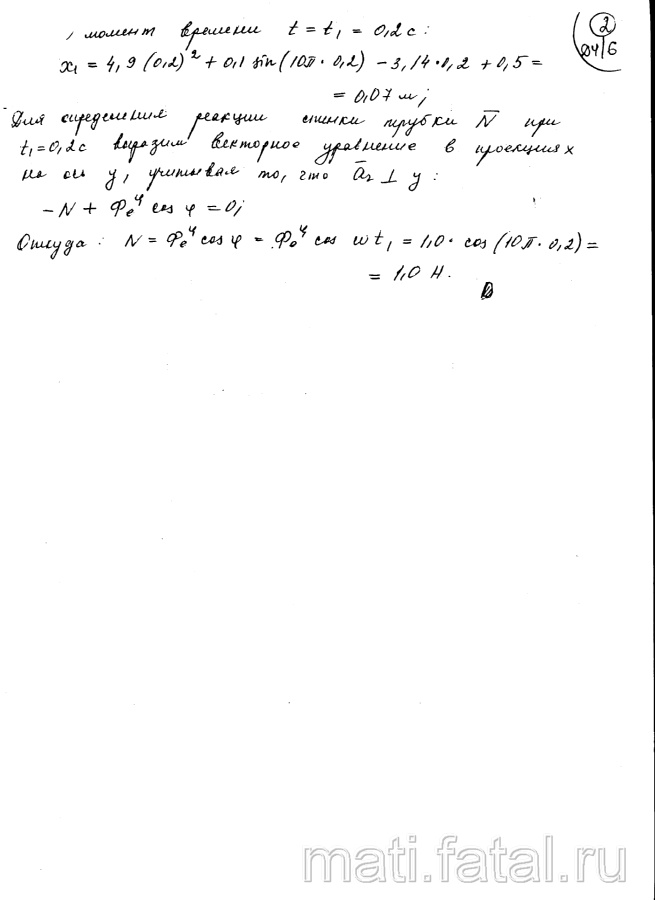 момент времени t = t₁ = 0,2 с :
2
Д4/6
x₁ = 4,9 (0,2)² + 0,1 sin(10π · 0,2) − 3,14·0,2 + 0,5 =
= 0,07 м;
Для определения реакции стенки трубки N̅ при
t₁=0,2с выразим векторное уравнение в проекциях
на ось y, учитывая то, что a̅r ⊥ y :
− N + Фeᶣ cos φ = 0;
Откуда : N = Фeᶣ cos φ = Фeᶣ cos ωt₁ = 1,0 · cos (10π · 0,2) =
= 1,0 Н.
mati.fatal.ru